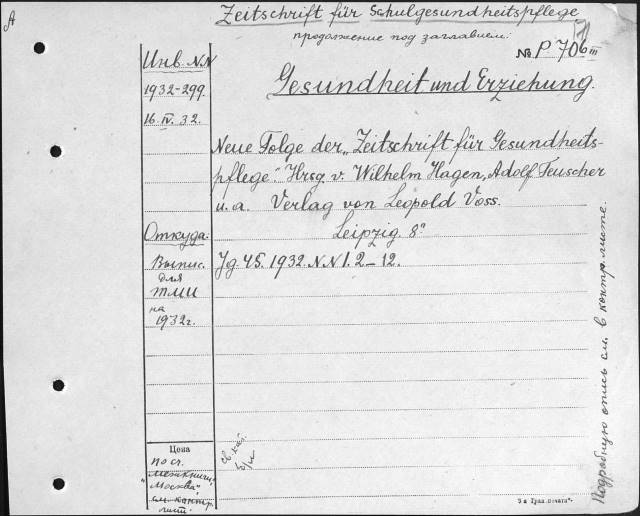 A
Zeitschrift für Schulgesundheitspflege
продолжение под заглавием:
№ P 706 III
Gesundheit und Erziehung.
Инв. N.N
1932-299.
16.IV.32.
Neue Folge der „Zeitschrift für Gesundheits-
pflege". Hrsg. v. Wilhelm Hagen, Adolf Teuscher
u. a. Verlag von Leopold Voss.
Leipzig 8°
Откуда:
Выпис.
для
ТМИ
на
1932г.
Jg. 45. 1932. N.N 1. 2-12.
Цена
по сч.
„Межкниги"
Москва",
см. контр.
лист.
св. кат.
Подробную опись см. в контр. листе.
5-я Трал. Печати".